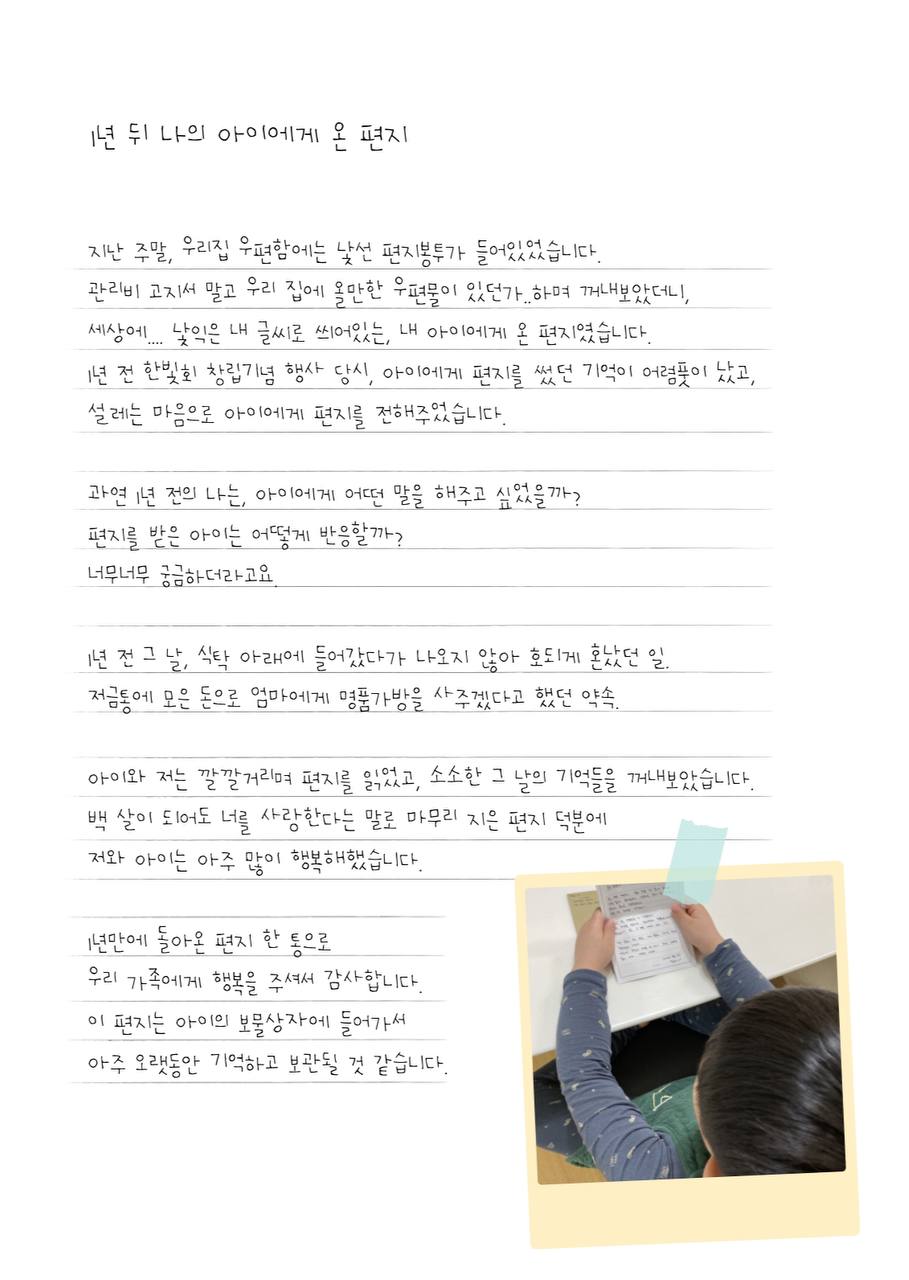 1년 뒤 나의 아이에게 온 편지
지난 주말, 우리집 우편함에는 낯선 편지봉투가 들어있었습니다.
관리비 고지서 말고 우리 집에 올만한 우편물이 있던가..하며 꺼내보았더니,
세상에.... 낯익은 내 글씨로 쓰여있는, 내 아이에게 온 편지였습니다.
1년 전 한빛회 창립기념 행사 당시, 아이에게 편지를 썼던 기억이 어렴풋이 났고,
설레는 마음으로 아이에게 편지를 전해주었습니다.
과연 1년 전의 나는, 아이에게 어떤 말을 해주고 싶었을까?
편지를 받은 아이는 어떻게 반응할까?
너무너무 궁금하더라고요.
1년 전 그 날, 식탁 아래에 들어갔다가 나오지 않아 호되게 혼났던 일.
저금통에 모은 돈으로 엄마에게 명품가방을 사주겠다고 했던 약속.
아이와 저는 깔깔거리며 편지를 읽었고, 소소한 그 날의 기억들을 꺼내보았습니다.
백 살이 되어도 너를 사랑한다는 말로 마무리 지은 편지 덕분에
저와 아이는 아주 많이 행복해했습니다.
1년만에 돌아온 편지 한 통으로
우리 가족에게 행복을 주셔서 감사합니다.
이 편지는 아이의 보물상자에 들어가서
아주 오랫동안 기억하고 보관될 것 같습니다.